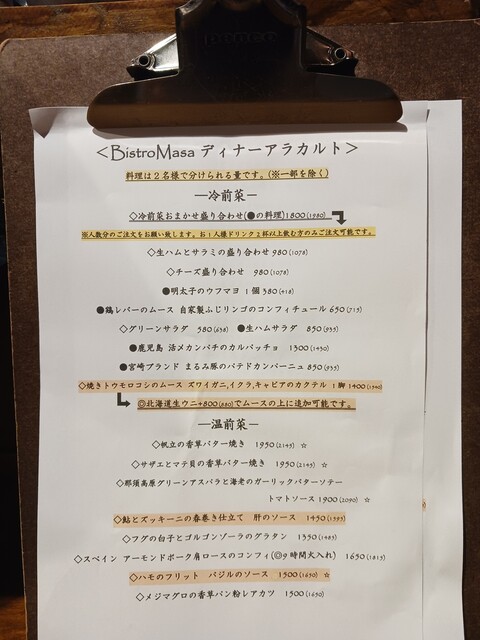 <BistroMasa ディナーアラカルト>
料理は２名様で分けられる量です。(※一部を除く)
—冷前菜—
◇冷前菜おまかせ盛り合わせ(●の料理)1800(1980)
※人数分のご注文をお願い致します。お１人様ドリンク２杯以上飲む方のみご注文可能です。
◇生ハムとサラミの盛り合わせ 980(1078)
◇チーズ盛り合わせ 980(1078)
●明太子のウフマヨ １個 380(418)
●鶏レバーのムース 自家製ふじリンゴのコンフィチュール 650(715)
◇グリーンサラダ 580(638) ●生ハムサラダ 850(935)
●鹿児島 活メカンパチのカルパッチョ 1300(1430)
●宮崎ブランド まるみ豚のパテドカンパーニュ 850(935)
◇焼きトウモロコシのムース ズワイガニ,イクラ,キャビアのカクテル １脚 1400(1540)
◎北海道生ウニ+800(880)でムースの上に追加可能です。
—温前菜—
◇帆立の香草バター焼き 1950(2145) ☆
◇サザエとマテ貝の香草バター焼き 1950(2145) ☆
◇那須高原グリーンアスパラと海老のガーリックバターソテー
トマトソース 1900(2090) ☆
◇鮎とズッキーニの春巻き仕立て 肝のソース 1450(1595)
◇フグの白子とゴルゴンゾーラのグラタン 1350(1485)
◇スペイン アーモンドポーク肩ロースのコンフィ(◎9時間火入れ) 1650(1815)
◇ハモのフリット バジルのソース 1500(1650) ☆
◇メジマグロの香草パン粉レアカツ 1500(1650)